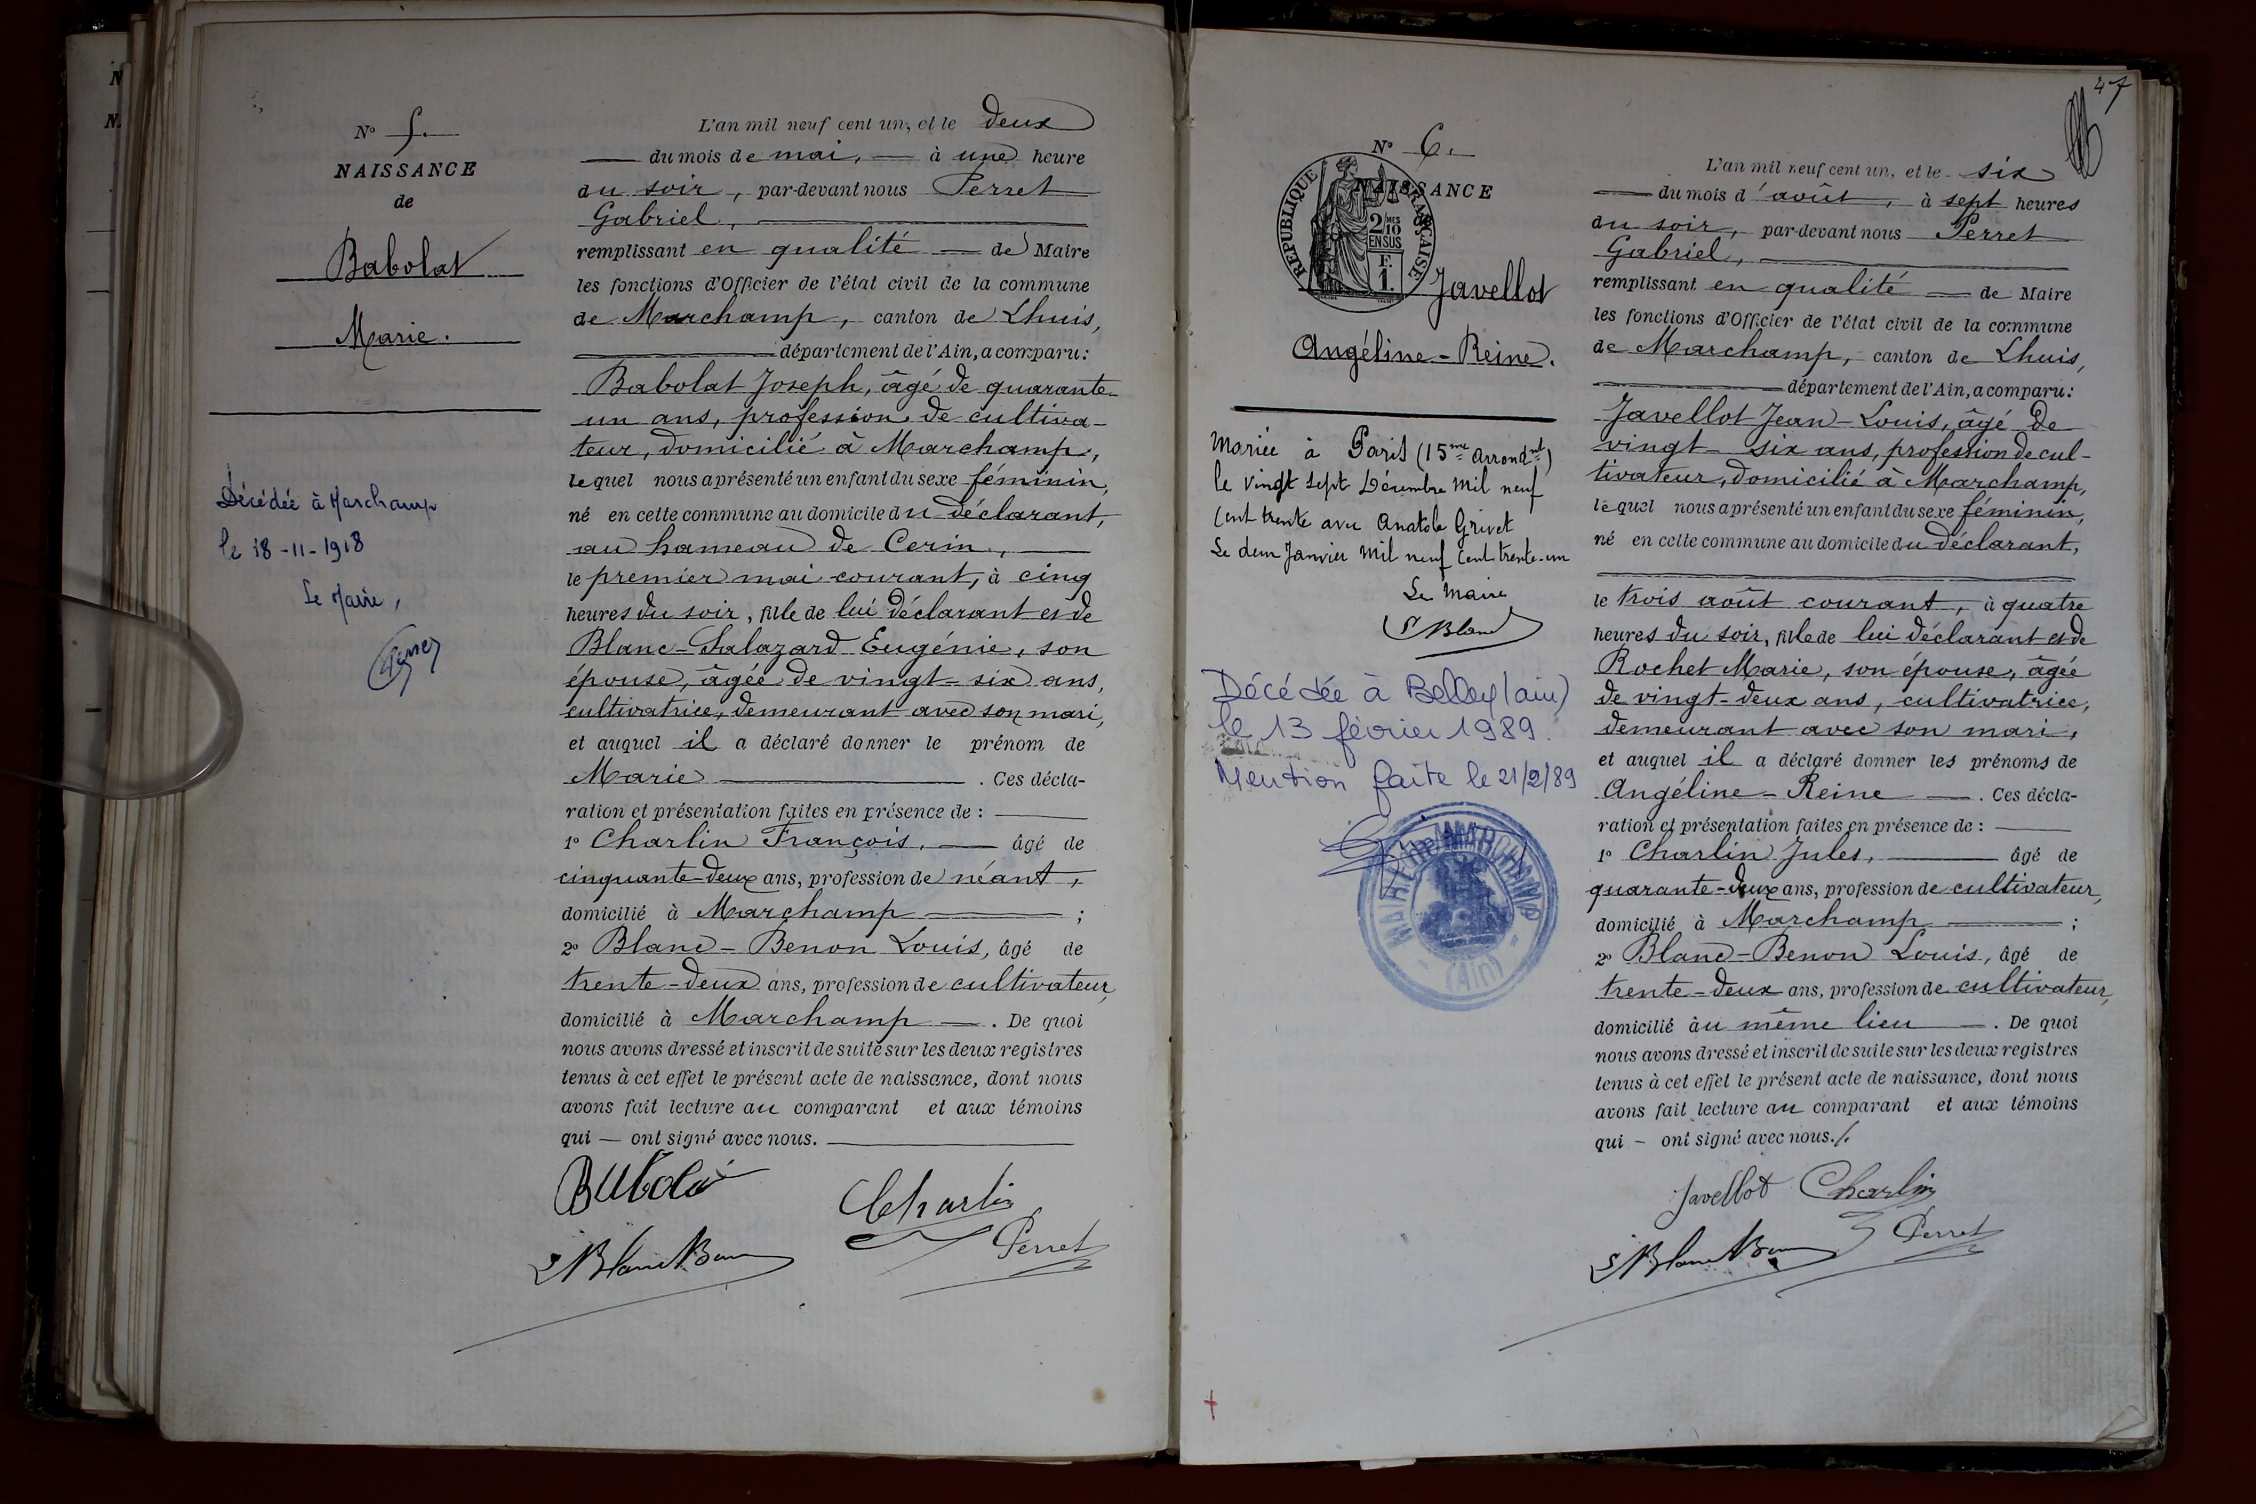 N° 5.
NAISSANCE
de
Babolat
Marie.
Décédée à Marchamp
le 18-11-1918
Le Maire,
L'an mil neuf cent un, et le deux
du mois de mai, à une heure
du soir, par-devant nous Perret
Gabriel,
remplissant en qualité de Maire
les fonctions d'Officier de l'état civil de la commune
de Marchamp, canton de Lhuis,
département de l'Ain, a comparu:
Babolat Joseph, âgé de quarante-
un ans, profession de cultiva-
teur, domicilié à Marchamp,
lequel nous a présenté un enfant du sexe féminin,
né en cette commune au domicile du déclarant,
au hameau de Cerin,
le premier mai courant, à cinq
heures du soir, fille de lui déclarant et de
Blanc-Salazard Eugénie, son
épouse, âgée de vingt-six ans,
cultivatrice, demeurant avec son mari,
et auquel il a déclaré donner le prénom de
Marie. Ces décla-
ration et présentation faites en présence de :
1° Charlin François, âgé de
cinquante-deux ans, profession de néant,
domicilié à Marchamp ;
2° Blanc-Benon Louis, âgé de
trente-deux ans, profession de cultivateur,
domicilié à Marchamp. De quoi
nous avons dressé et inscrit de suite sur les deux registres
tenus à cet effet le présent acte de naissance, dont nous
avons fait lecture au comparant et aux témoins
qui — ont signé avec nous.
Babolat
Charlin
Perret
47
N° 6.
NAISSANCE
de
RÉPUBLIQUE FRANÇAISE
2/10 MES
EN SUS
F.
1.
Javellot
Angéline-Reine.
Mariée à Paris (15me arrondnt)
le vingt sept Décembre mil neuf
cent trente avec Anatole Grivet
Le deux Janvier mil neuf cent trente-un
Le Maire
Décédée à Belley (ain)
le 13 février 1989.
Mention faite le 21/2/89
MAIRIE DE MARCHAMP
(Ain)
L'an mil neuf cent un, et le six
du mois d'août, à sept heures
du soir, par-devant nous Perret
Gabriel,
remplissant en qualité de Maire
les fonctions d'Officier de l'état civil de la commune
de Marchamp, canton de Lhuis,
département de l'Ain, a comparu:
Javellot Jean-Louis, âgé de
vingt-six ans, profession de cul-
tivateur, domicilié à Marchamp,
lequel nous a présenté un enfant du sexe féminin,
né en cette commune au domicile du déclarant,
le trois août courant, à quatre
heures du soir, fille de lui déclarant et de
Rochet Marie, son épouse, âgée
de vingt-deux ans, cultivatrice,
demeurant avec son mari,
et auquel il a déclaré donner les prénoms de
Angéline-Reine. Ces décla-
ration et présentation faites en présence de :
1° Charlin Jules, âgé de
quarante-deux ans, profession de cultivateur,
domicilié à Marchamp ;
2° Blanc-Benon Louis, âgé de
trente-deux ans, profession de cultivateur,
domicilié au même lieu. De quoi
nous avons dressé et inscrit de suite sur les deux registres
tenus à cet effet le présent acte de naissance, dont nous
avons fait lecture au comparant et aux témoins
qui – ont signé avec nous./.
Javellot Charlin
Perret